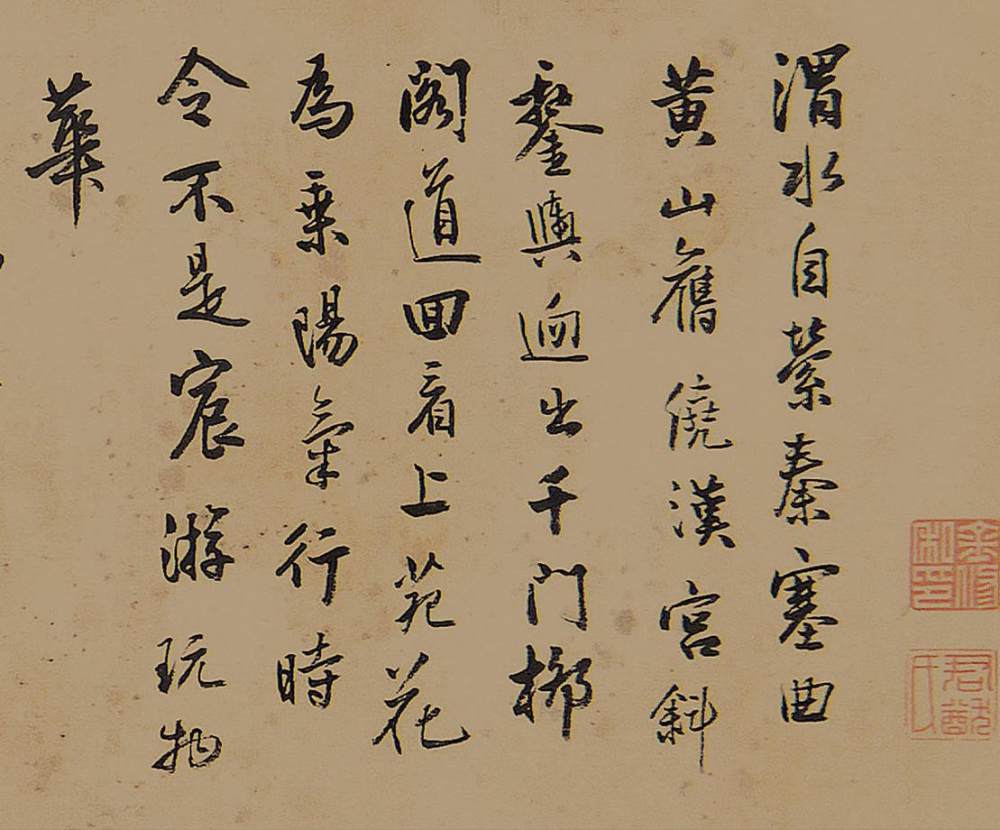 渭水自縈秦塞曲
黃山舊僥漢宮斜
鑾輿逈出千門桺
閣道囬看上苑花
為乘陽氣行時
令不是宸游玩物
華